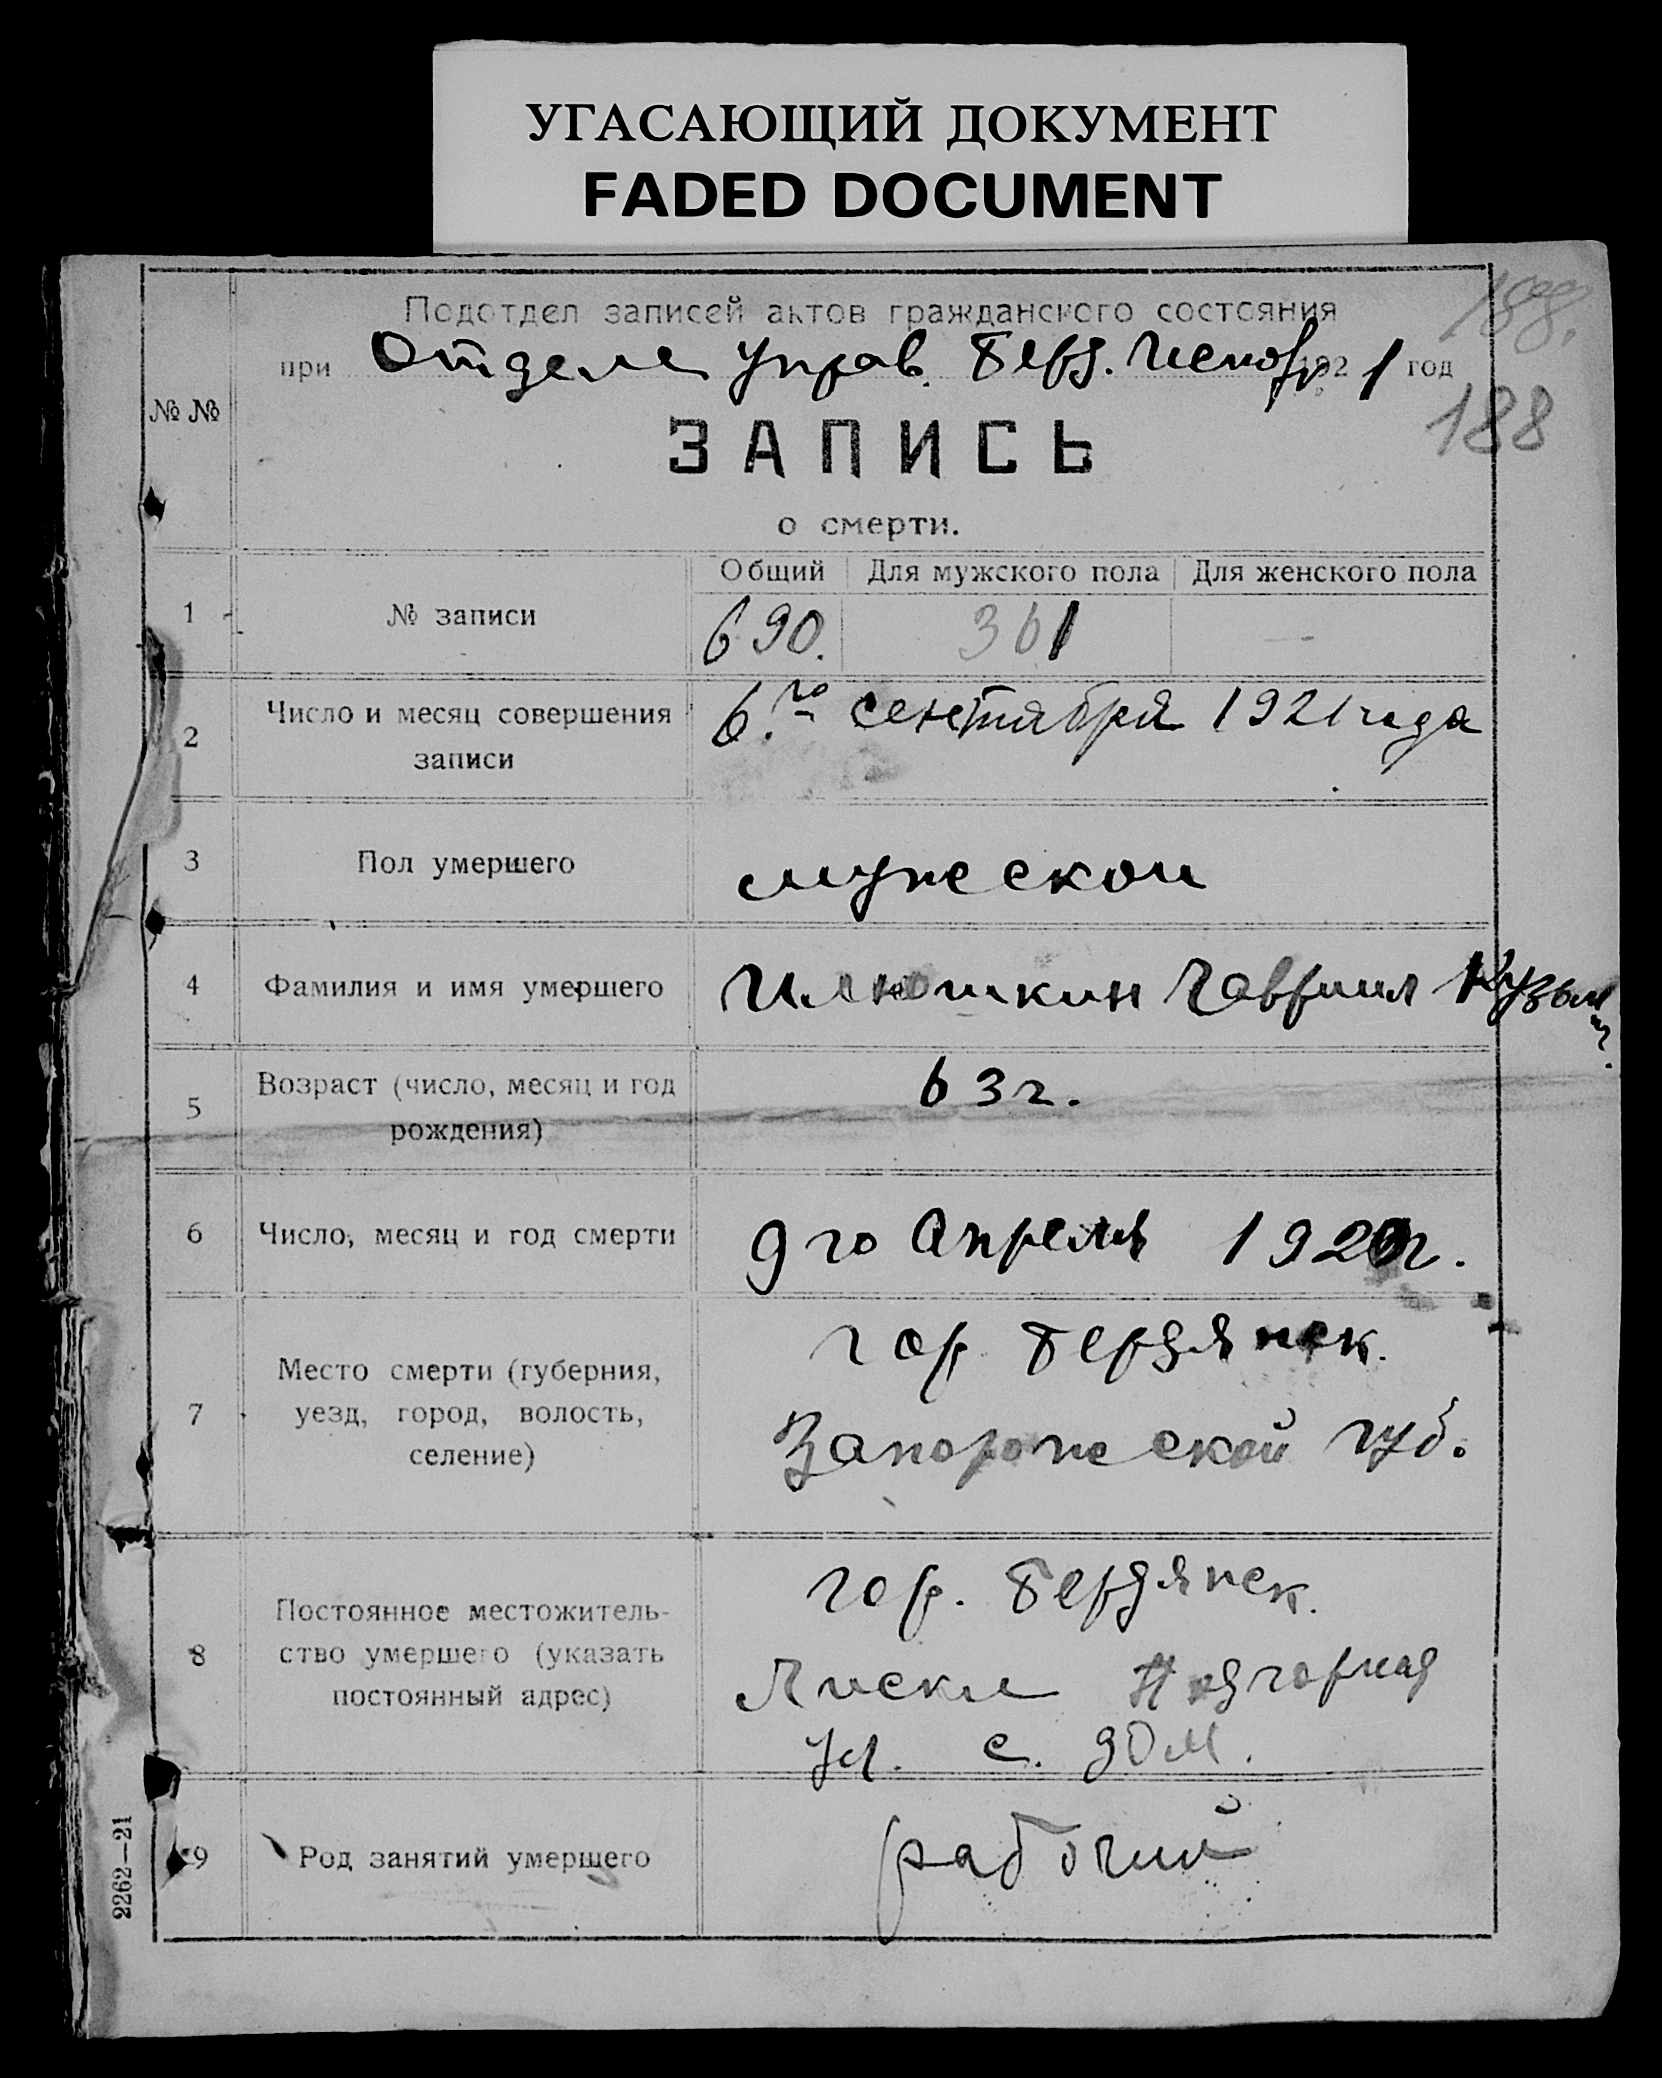 УГАСАЮЩИЙ ДОКУМЕНТ
FADED DOCUMENT
188.
Подотдел записей актов гражданского состояния
при Отделе Управ. Берд. Исполр 1921 год
188
№ №
ЗАПИСЬ
о смерти.
Общий Для мужского пола Для женского пола
1 № записи 690. 361 —
2 Число и месяц совершения 6.го сентября 1921 года
записи
3 Пол умершего мужеской
4 Фамилия и имя умершего Илюшкин Гавриил Кузьм
5 Возраст (число, месяц и год 63 г.
рождения)
6 Число, месяц и год смерти 9 го Апреля 1920 г.
7 Место смерти (губерния, гор. Бердянск.
уезд, город, волость, Запорожской губ.
селение)
8 Постоянное местожитель- гор. Бердянск.
ство умершего (указать Лиски Нагорная
постоянный адрес) ул. с. дом.
9 Род занятий умершего рабочий
2262—21